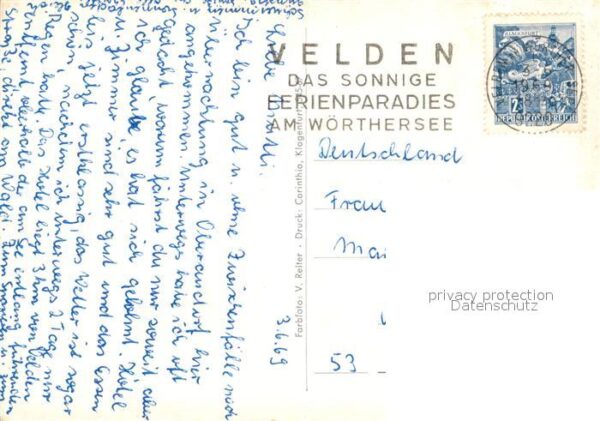 VELDEN
DAS SONNIGE
FERIENPARADIES
AM WÖRTHERSEE
REPUBLIK ÖSTERREICH
Deutschland
Frau
Mai
53
privacy protection
Datenschutz
Farbfoto: V. Reiter · Druck: Corinthia, Klagenfurt
3.6.69
Liebe Mutti.
Ich bin gut u. ohne Zwischenfälle nach
Übernachtung in Oberaudorf hier
angekommen. Unterwegs habe ich oft
gedacht, warum fährst du nur soweit aber
ich glaube es hat sich gelohnt. Hotel
u. Zimmer sind sehr gut und das Essen
bis jetzt erstklassig, das Wetter ist sogar
schön, nachdem ich unterwegs 2 Tage nur
Regen hatte. Das Hotel liegt 3 km von Velden
entfernt oberhalb der am See entlang führenden
Straße direkt am Wald. Zum Spazieren u. zum
Schwimmen u.